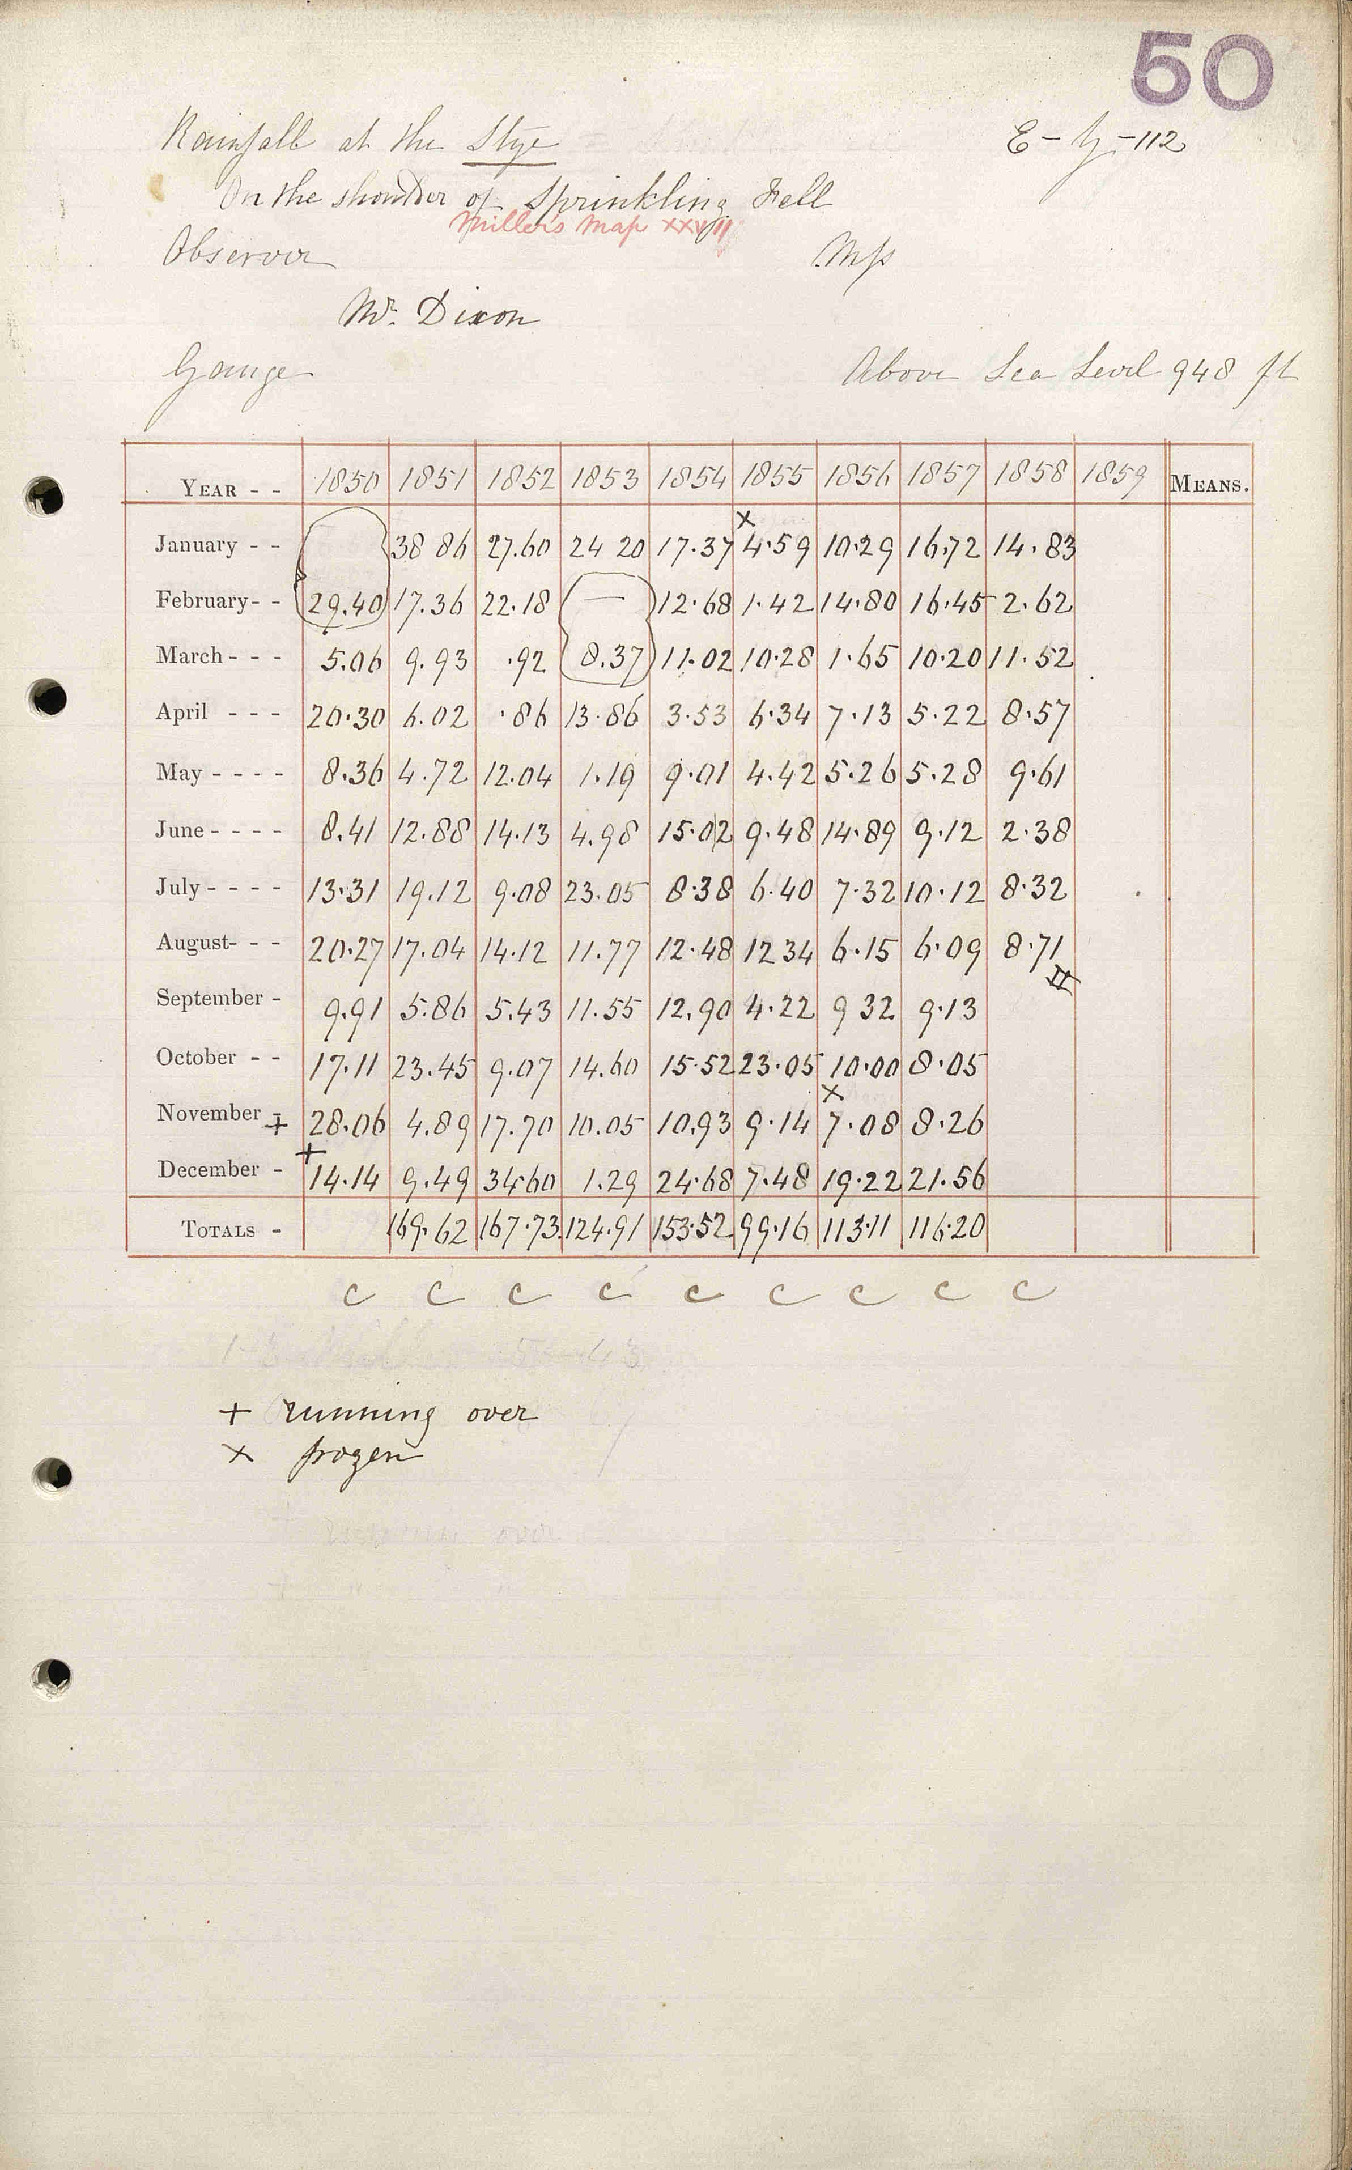 50
Rainfall at the Stye
E - y - 112
On the shoulder of Sprinkling Fell
Miller's Map XXVII
Observer
Mss
Mr. Dixon
Gauge
Above Sea Level 948 ft
YEAR - - 1850 1851 1852 1853 1854 1855 1856 1857 1858 1859 MEANS.
x
January - - 38 86 27.60 24 20 17.37 4.59 10.29 16.72 14.83
February - - 29.40 17.36 22.18 — 12.68 1.42 14.80 16.45 2.62
March - - - 5.06 9.93 .92 8.37 11.02 10.28 1.65 10.20 11.52
April - - - 20.30 6.02 .86 13.86 3.53 6.34 7.13 5.22 8.57
May - - - - 8.36 4.72 12.04 1.19 9.01 4.42 5.26 5.28 9.61
June - - - - 8.41 12.88 14.13 4.98 15.02 9.48 14.89 9.12 2.38
July - - - - 13.31 19.12 9.08 23.05 8.38 6.40 7.32 10.12 8.32
August - - - 20.27 17.04 14.12 11.77 12.48 12 34 6.15 6.09 8.71
September - 9.91 5.86 5.43 11.55 12.90 4.22 9 32 9.13
October - - 17.11 23.45 9.07 14.60 15.52 23.05 10.00 8.05
x
November + 28.06 4.89 17.70 10.05 10.93 9.14 7.08 8.26
+
December - 14.14 9.49 34.60 1.29 24.68 7.48 19.22 21.56
TOTALS - 169.62 167.73 124.91 153.52 99.16 113.11 116.20
c c c c c c c c c
+ running over
x frozen